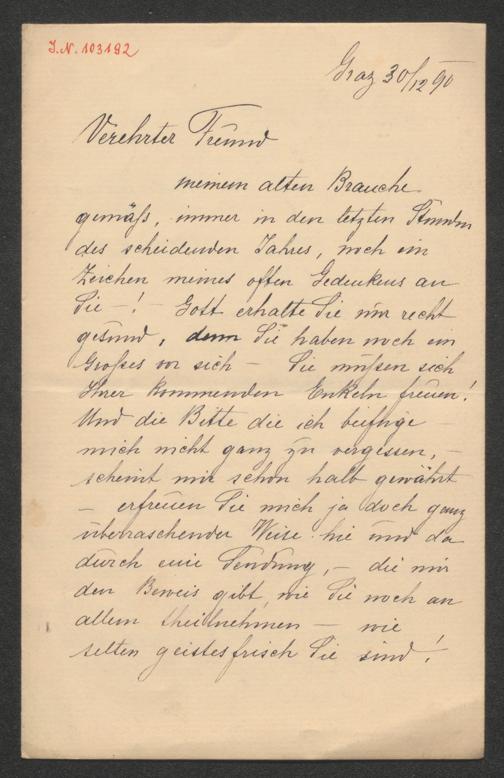 J.N. 103192
Graz 30/12 90
Verehrter Freund
meinem alten Brauche
gemäß, immer in den letzten Stunden
des scheidenden Jahres, noch ein
Zeichen meines often Gedenkens an
Sie – ! – Gott erhalte Sie nur recht
gesund, denn Sie haben noch ein
Großes vor sich – Sie müßen sich
Ihrer kommenden Enkeln freuen!
Und die Bitte die ich beifüge –
mich nicht ganz zu vergessen, –
scheint mir schon halb gewährt
– erfreuen Sie mich ja doch ganz
überraschender Weise hie und da
durch eine Sendung, – die mir
den Beweis gibt, wie Sie noch an
allem theilnehmen – wie
selten geistesfrisch Sie sind!